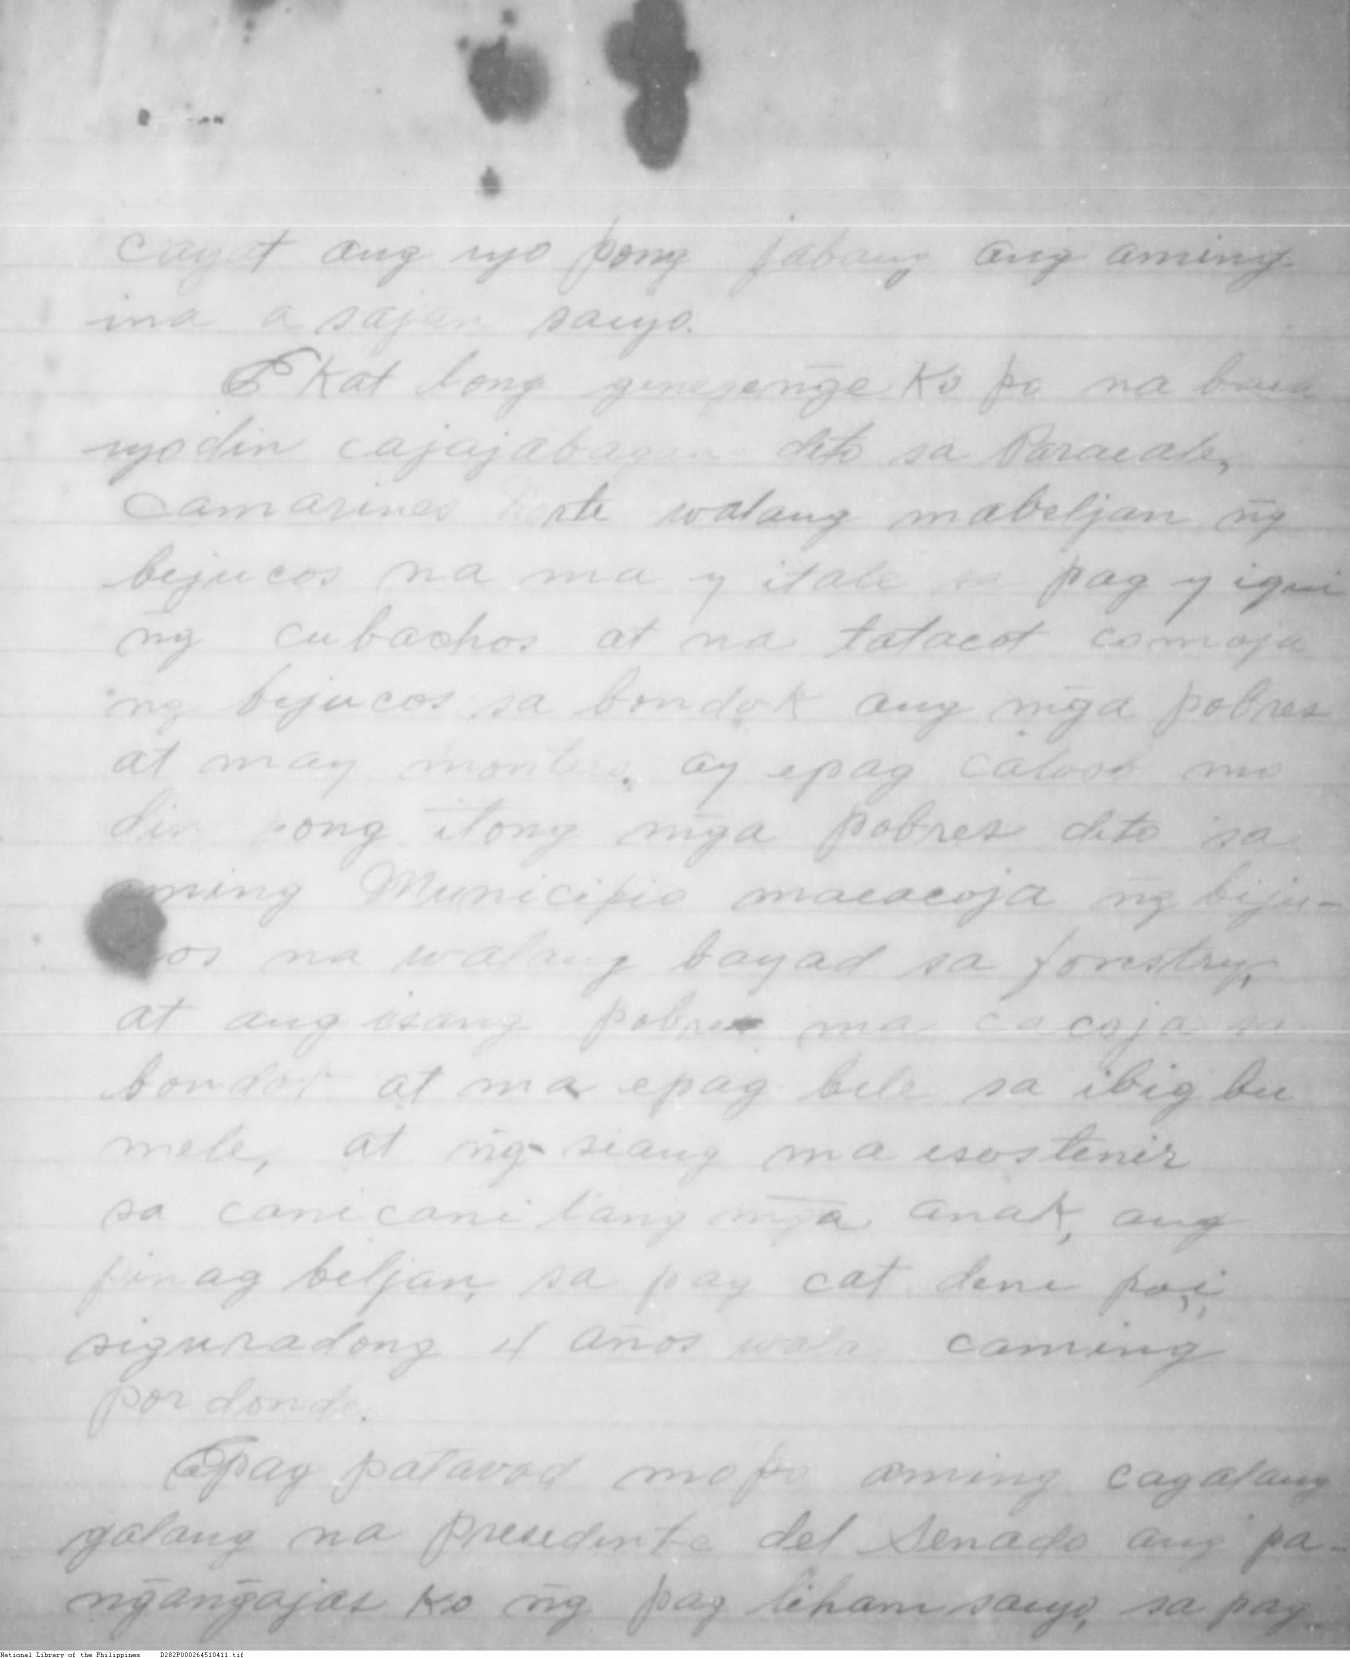 cayat ang uyo pong jabang ang aming
ina a sajan sauyo.
Ekat long genegenḡe Ko po na
uyodin cajajabagan dito sa Paracale,
Camarines Norte walang mabeljan n̄g
bejucos na ma y itale sa pag y igui
n̄g cubachos at na tatacot comoja
ng bejucos sa bondok ang mḡa pobres
at may montero, ay epag caloob mo
din pong itong mḡa pobres dito sa
aming Municipio macacoja n̄g biju-
cos na walang bayad sa forestry,
at ang isang pobre ma cacoja sa
bondok at ma epag bele sa ibig bu
mele, at n̄g siang ma esostenir
sa canicanilang mḡa anak, ang
pinag beljan, sa pag cat dene po,i,
siguradong 4 años wala caming
por donde.
Epag patavad mo po aming cagalang
galang na presedente del Senado ang pa-
n̄gan̄gajas Ko n̄g pag liham sauyo, sa pag
National Library of the Philippines D282P000264510411.tif